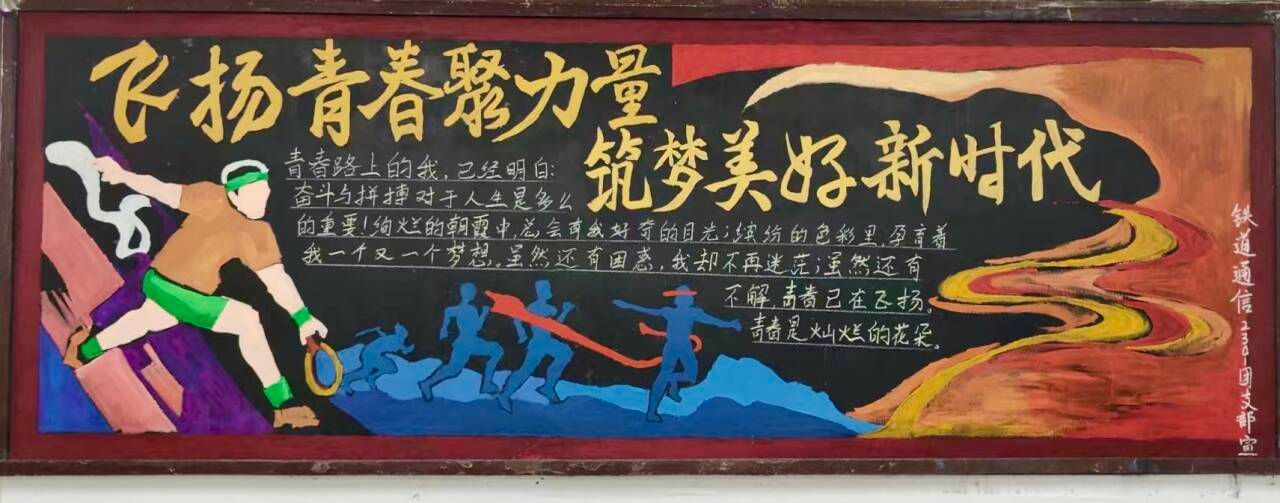 飞扬青春聚力量
筑梦美好新时代
青春路上的我，已经明白：
奋斗与拼搏对于人生是多么
的重要！绚烂的朝霞中，总会有我好奇的目光；缤纷的色彩里，孕育着
我一个又一个梦想。虽然还有困惑，我却不再迷茫；虽然还有
不解，青春已在飞扬。
青春是灿烂的花朵。
铁道通信2301团支部宣